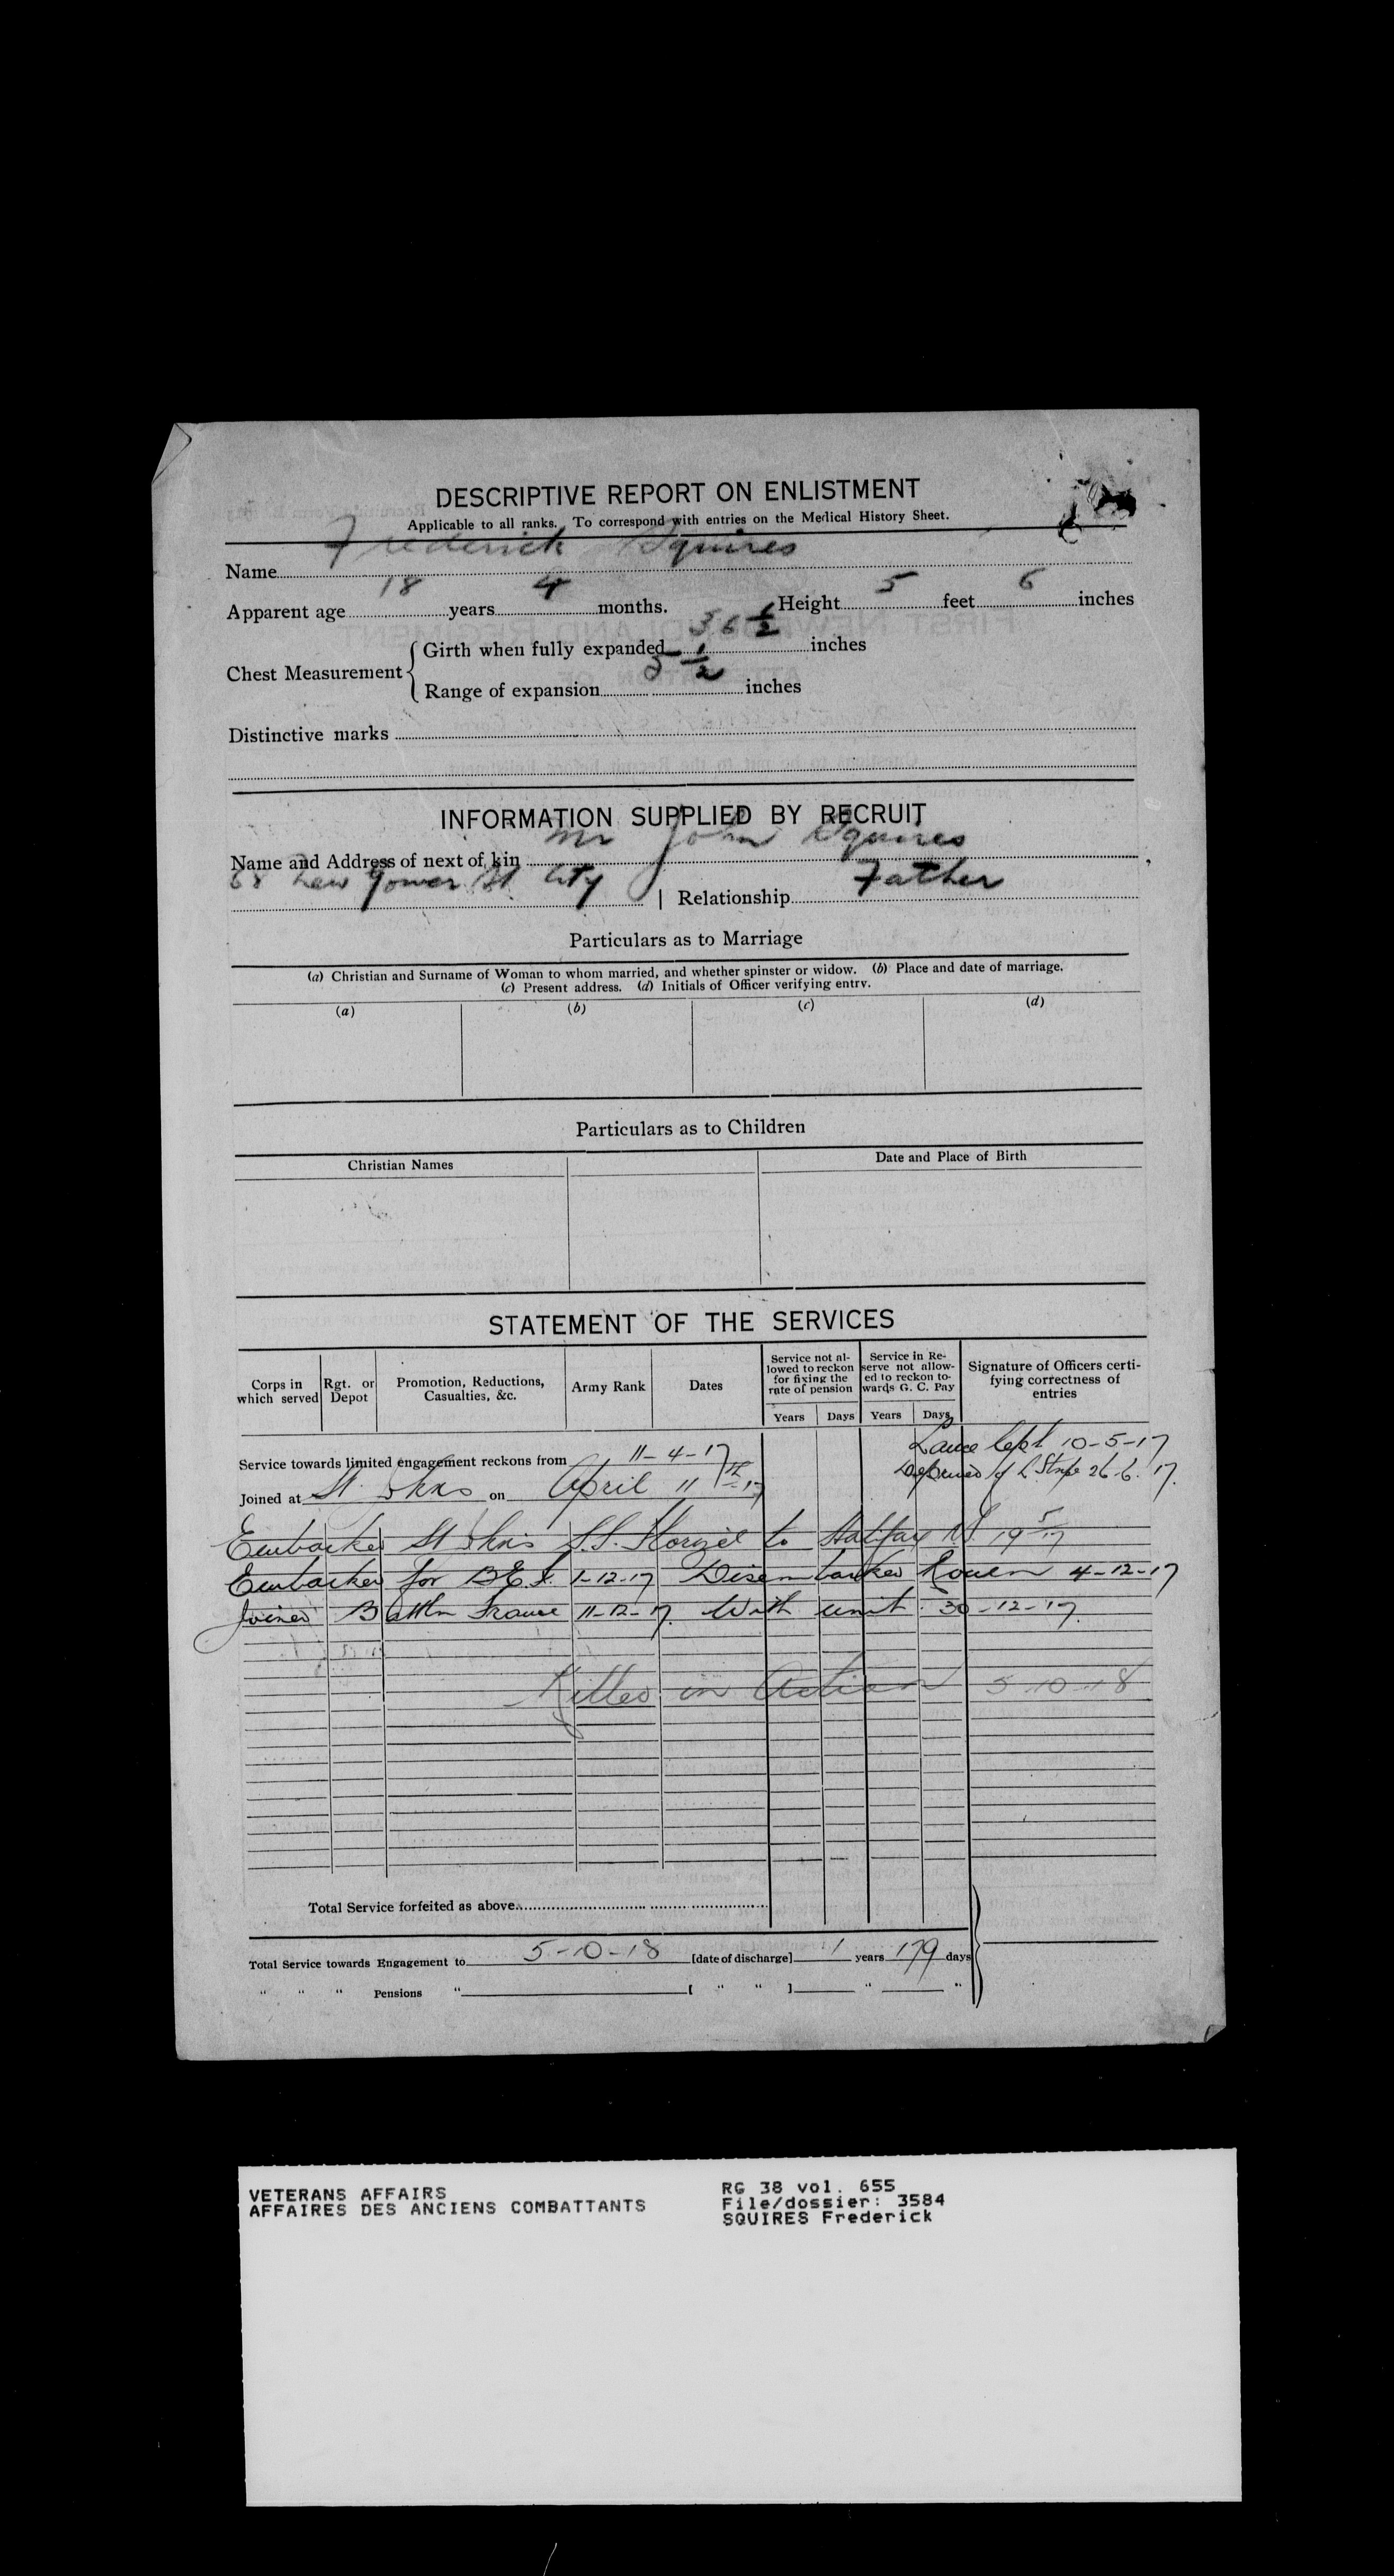 DESCRIPTIVE REPORT ON ENLISTMENT
Applicable to all ranks. To correspond with entries on the Medical History Sheet.
Name Frederick Squires
Apparent age 18 years 4 months. Height 5 feet 6 inches
Chest Measurement { Girth when fully expanded 36 1/2 inches
Range of expansion 5 1/2 inches
Distinctive marks
INFORMATION SUPPLIED BY RECRUIT
Name and Address of next of kin Mr John Squires
68 New Gower St City | Relationship Father
Particulars as to Marriage
(a) Christian and Surname of Woman to whom married, and whether spinster or widow. (b) Place and date of marriage.
(c) Present address. (d) Initials of Officer verifying entry.
(a) (b) (c) (d)
Particulars as to Children
Christian Names Date and Place of Birth
STATEMENT OF THE SERVICES
Corps in which served Rgt. or Depot Promotion, Reductions, Casualties, &c. Army Rank Dates Service not allowed to reckon for fixing the rate of pension Service in Reserve not allowed to reckon towards G. C. Pay Signature of Officers certifying correctness of entries
Years Days Years Days
Lance Cpl 10-5-17
Service towards limited engagement reckons from 11-4-17
Deprived of L. Stripe 26-6-17.
Joined at St Johns on April 11th 17
Embarked St Johns S.S. Florizel to Halifax N.S. 19 5/17
Embarked for B.E.F. 1-12-17 Disembarked Rouen 4-12-17
Joined Battln France 11-12-17. With unit 30-12-17.
Killed in Action 5-10-18
Total Service forfeited as above
Total Service towards Engagement to 5-10-18 [date of discharge] 1 years 179 days
" " " Pensions " [ " " ] " "
VETERANS AFFAIRS RG 38 vol. 655
AFFAIRES DES ANCIENS COMBATTANTS File/dossier: 3584
SQUIRES Frederick